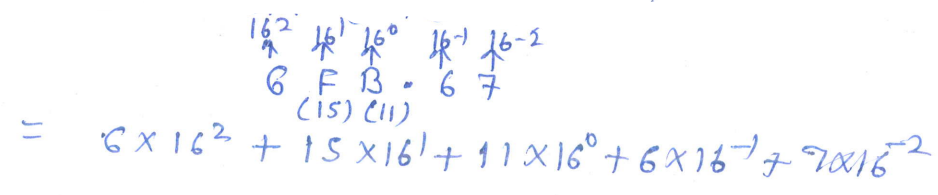 16² 16¹ 16⁰ 16⁻¹ 16⁻²
6 F B . 6 7
(15) (11)
= 6 × 16² + 15 × 16¹ + 11 × 16⁰ + 6 × 16⁻¹ + 7 × 16⁻²